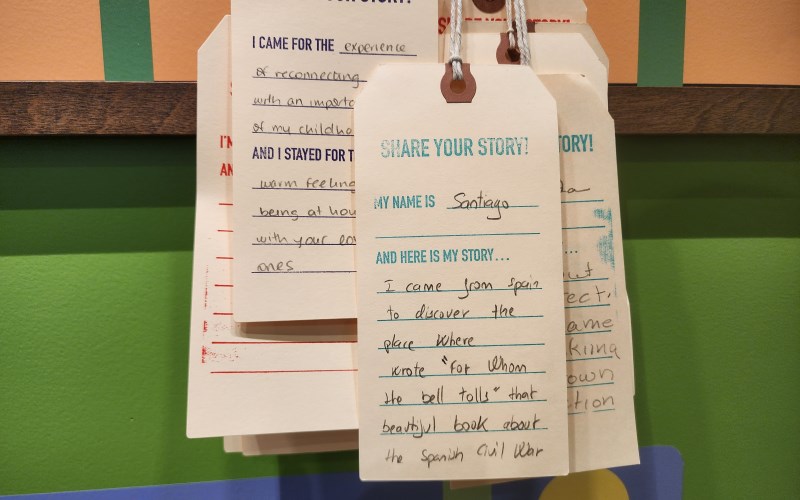 I CAME FOR THE experience
of reconnecting
with an importa
of my childho
AND I STAYED FOR T
warm feeling
being at hou
with your lov
ones
SHARE YOUR STORY!
MY NAME IS Santiago
AND HERE IS MY STORY...
I came from Spain
to discover the
place Where
wrote "For Whom
the bell tolls" that
beautiful book about
the Spanish Civil War
TORY!
ame
king
own
tion